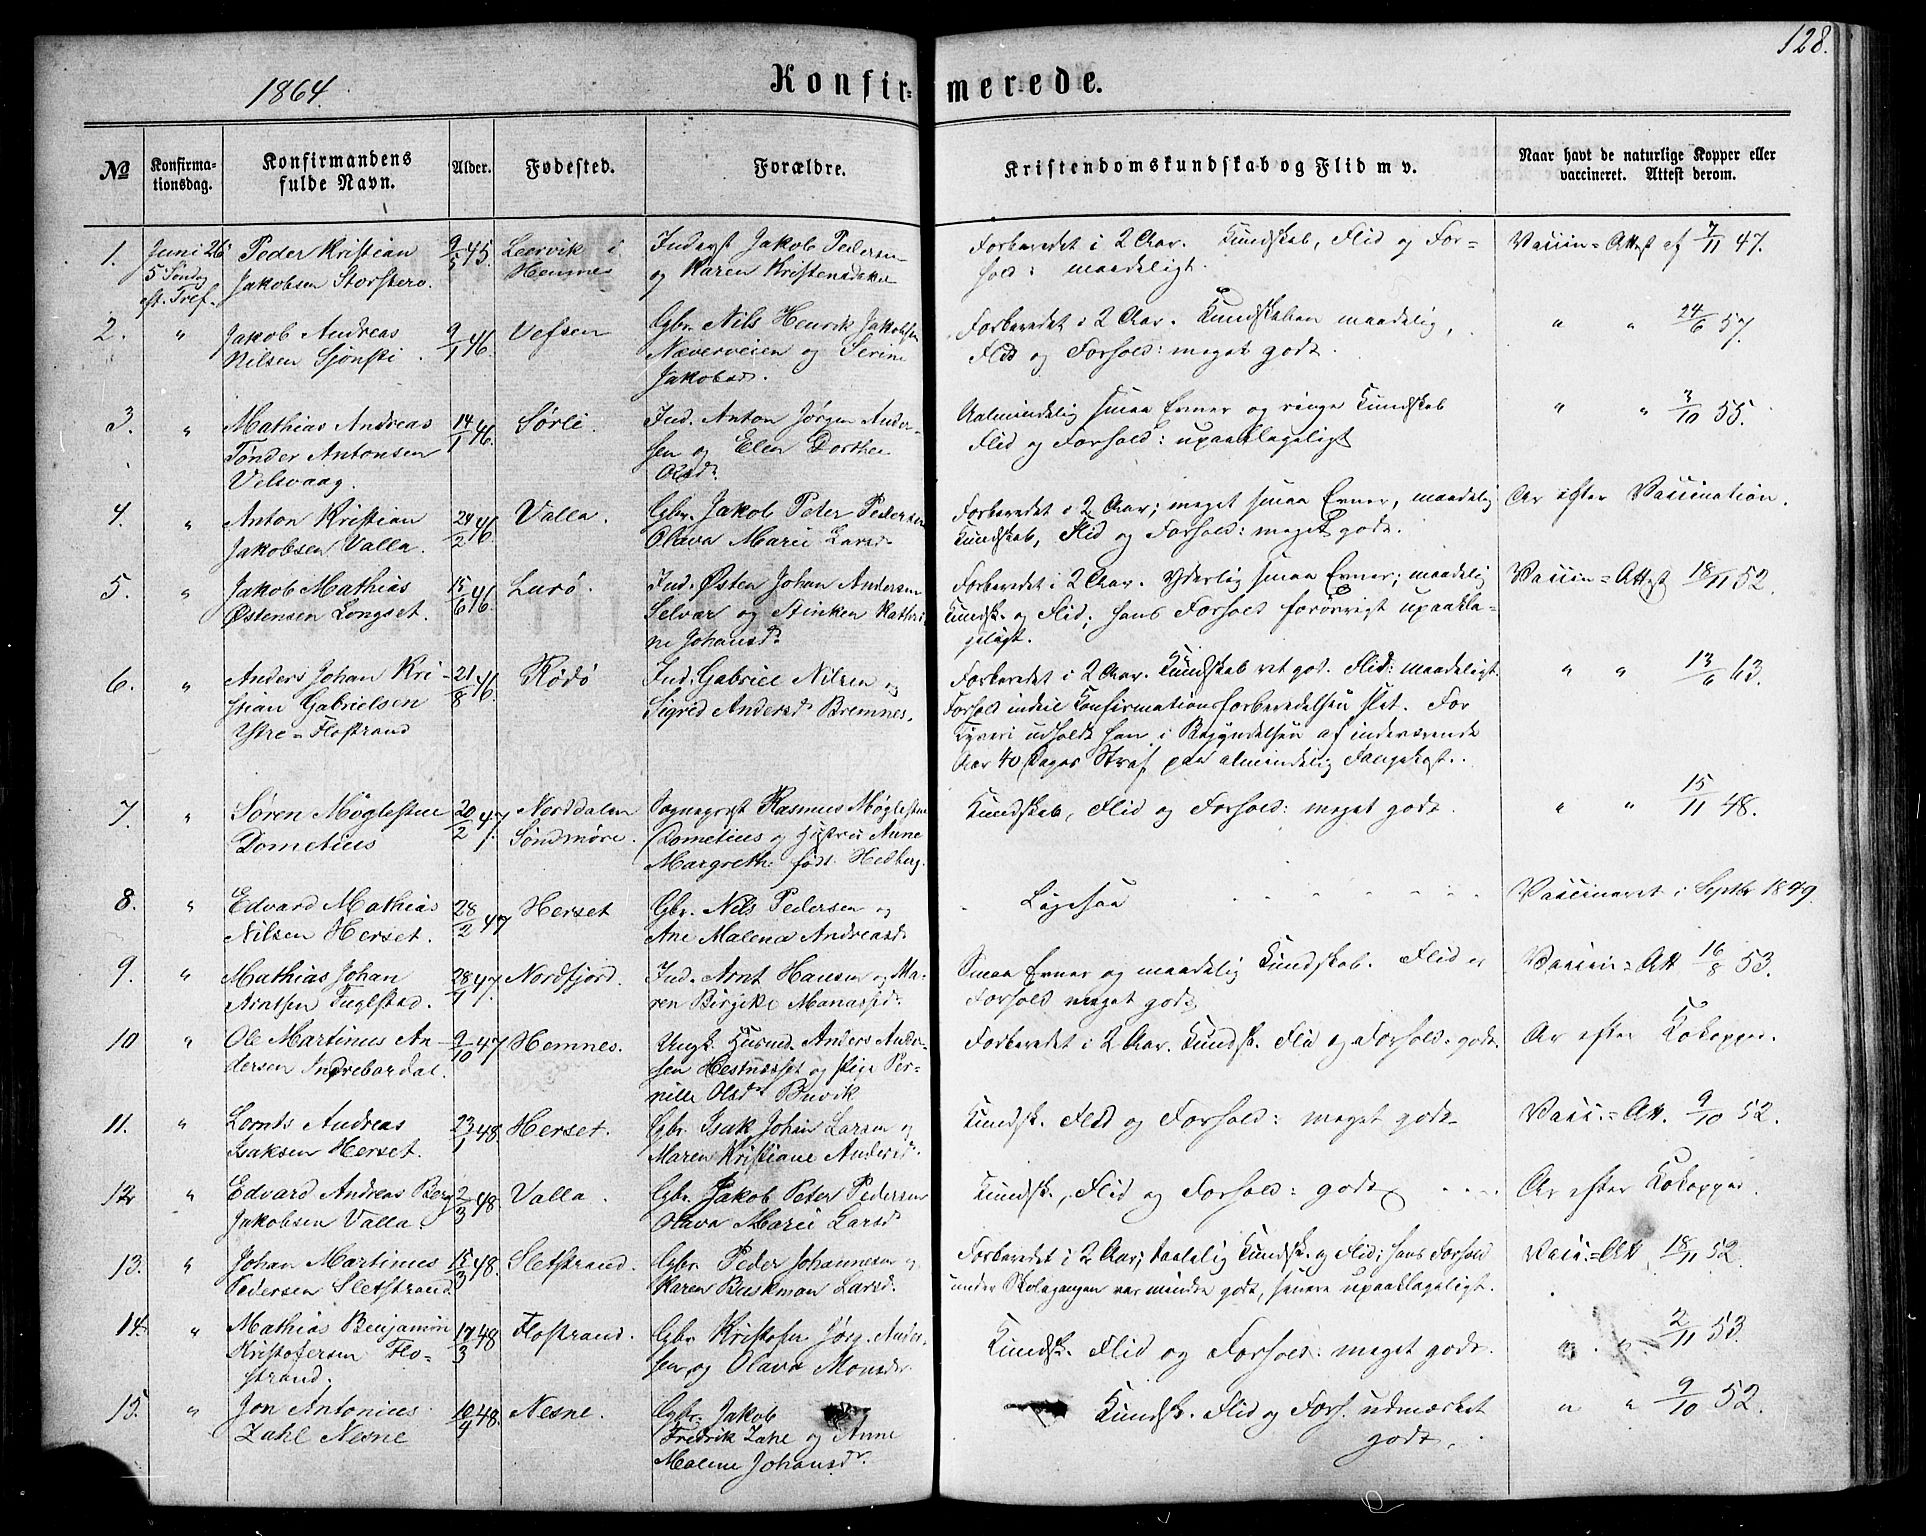 128.
1864
Konfir- merede.
No
Konfirma-
tionsdag.
Konfirmandens
fulde Navn.
Alder.
Fødested.
Forældre.
Kristendomskundskab og Flid m v.
Naar havt de naturlige Kopper eller
vaccineret. Attest derom.
1. Juni 26 Peder Kristian 9/5 45. Leervik i Inderst Jakob Pedersen Forberedet i 2 Aar. Kundskab, Flid og For= Vaccin=Attest af 7/11 47.
5 Søndag Jakobsen Storstero. Hemnes og Karen Kristensdatter hold: maadeligt.
eft. Tref.
2. " Jakob Andreas 9/1 46. Vefsen Gbr. Nils Henrik Jakobsen Forberedet i 2 Aar. Kundskaben maadelig, " " 24/6 57.
Nilsen Sjönsti. Næverveien og Serine Flid og Forhold: meget godt.
Jakobsd.
3. " Mathias Andreas 14/1 46. Sørli. Ind. Anton Jörgen Ander- Ualmindelig smaa Evner og ringe Kundskab " " 3/10 55.
Tønder Antonsen sen og Elen Dorthea Flid og Forhold: upaaklageligt
Velsvaag. Olsd.
4. " Anton Kristian 24/2 46. Valla. Gbr. Jakob Peter Pedersen Forberedet i 2 Aar; meget smaa Evner, maadelig Ar efter Vaccination.
Jakobsen Valla. Olava Marie Larsd. Kundskab, Flid og Forhold: meget godt.
5. " Jakob Mathias 15/6 46. Lurö. Ind. Østen Johan Andersen Forberedet i 2 Aar. Yderlig smaa Evner; maadelig Vaccin=Attest 18/11 52.
Østensen Longset. Selvær og Stinken Kathri- Kundsk. og Flid; hans Forhold forøvrigt upaakla-
ne Johansd. geligt.
6. " Anders Johan Kri- 21/8 46. Rödö Ind. Gabriel Nilsen og Forberedet i 2 Aar. Kundskab ret god. Flid: maadeligt. " " 13/6 63.
stian Gabrielsen Sigrid Andersd. Bremnes. Forhold indtil Konfirmationsforberedelsen slet. For
Ytre=Flostrand Tyveri udholdt han i Begyndelsen af indeværende
Aar 40 Dages Straf paa almindelig Fangekost.
7. " Sören Möglestue 20/2 47. Norddalen Sogneprest Rasmus Möglestue Kundskab, Flid og Forhold: meget godt. " " 15/11 48.
Dometius Söndmöre. Dometius og Hustru Anne
Margreth. født Hedberg.
8. " Edvard Mathias 28/2 47 Herset Gbr. Nils Pedersen og Ligesaa Vaccineret i Septbr 1849.
Nilsen Herset. Ane Malena Andreasd.
9. " Mathias Johan 28/1 47. Nordfjord. Ind. Arnt Hansen og Ma- Smaa Evner og maadelig Kundskab. Flid og Vaccin=Att 16/8 53.
Arntsen Fuglstad. ren Birgitte Manassed. Forhold meget godt.
10 " Ole Martinus An- 9/10 47 Hemnes. Ungk. Husmd. Anders Ander- Forberedet i 2 Aar. Kundsk. Flid og Forhold: godt. Ar efter Kokopper.
dersen Indrebardal. sen Hestnæsset og Pige Per-
nille Olsd. Buvik
11. " Lernts Andreas 23/1 48. Herset. Gbr. Isak Johan Larsen og Kundsk. Flid og Forhold: meget godt. Vacc.=Att. 9/10 52.
Isaksen Herset. Maren Kristiane Andersd.
12 " Edvard Andreas Berg 2/3 48. Valla. Gbr. Jakob Peter Pedersen Kundsk., Flid og Forhold: godt Ar efter Kokopper.
Jakobsen Valla Olava Marie Larsd.
13. " Johan Martinus 15/3 48. Sletstrand. Gbr. Peder Johannesen og Forberedet i 2 Aar; taalelig Kundsk. og Flid; hans Forhold Vacc.=Att 18/11 52.
Pedersen Sletstrand Karen Buskman Larsd. under Skolegangen var mindre godt, senere upaaklageligt.
14. " Mathias Benjamin 17/3 48 Flostrand. Gbr. Kristofer Jörg. Ander- Kundsk. Flid og Forhold: meget godt. " " 2/11 53.
Kristofersen Flo- sen og Olava Monsd.
strand.
15. " Jon Antonius 10/4 48. Nesne. Gbr. Jakob Kundsk. Flid og Forh. udmærket " " 9/10 52.
Zahl Nesne Fredrik Zahl og Anne godt.
Malene Johansd.